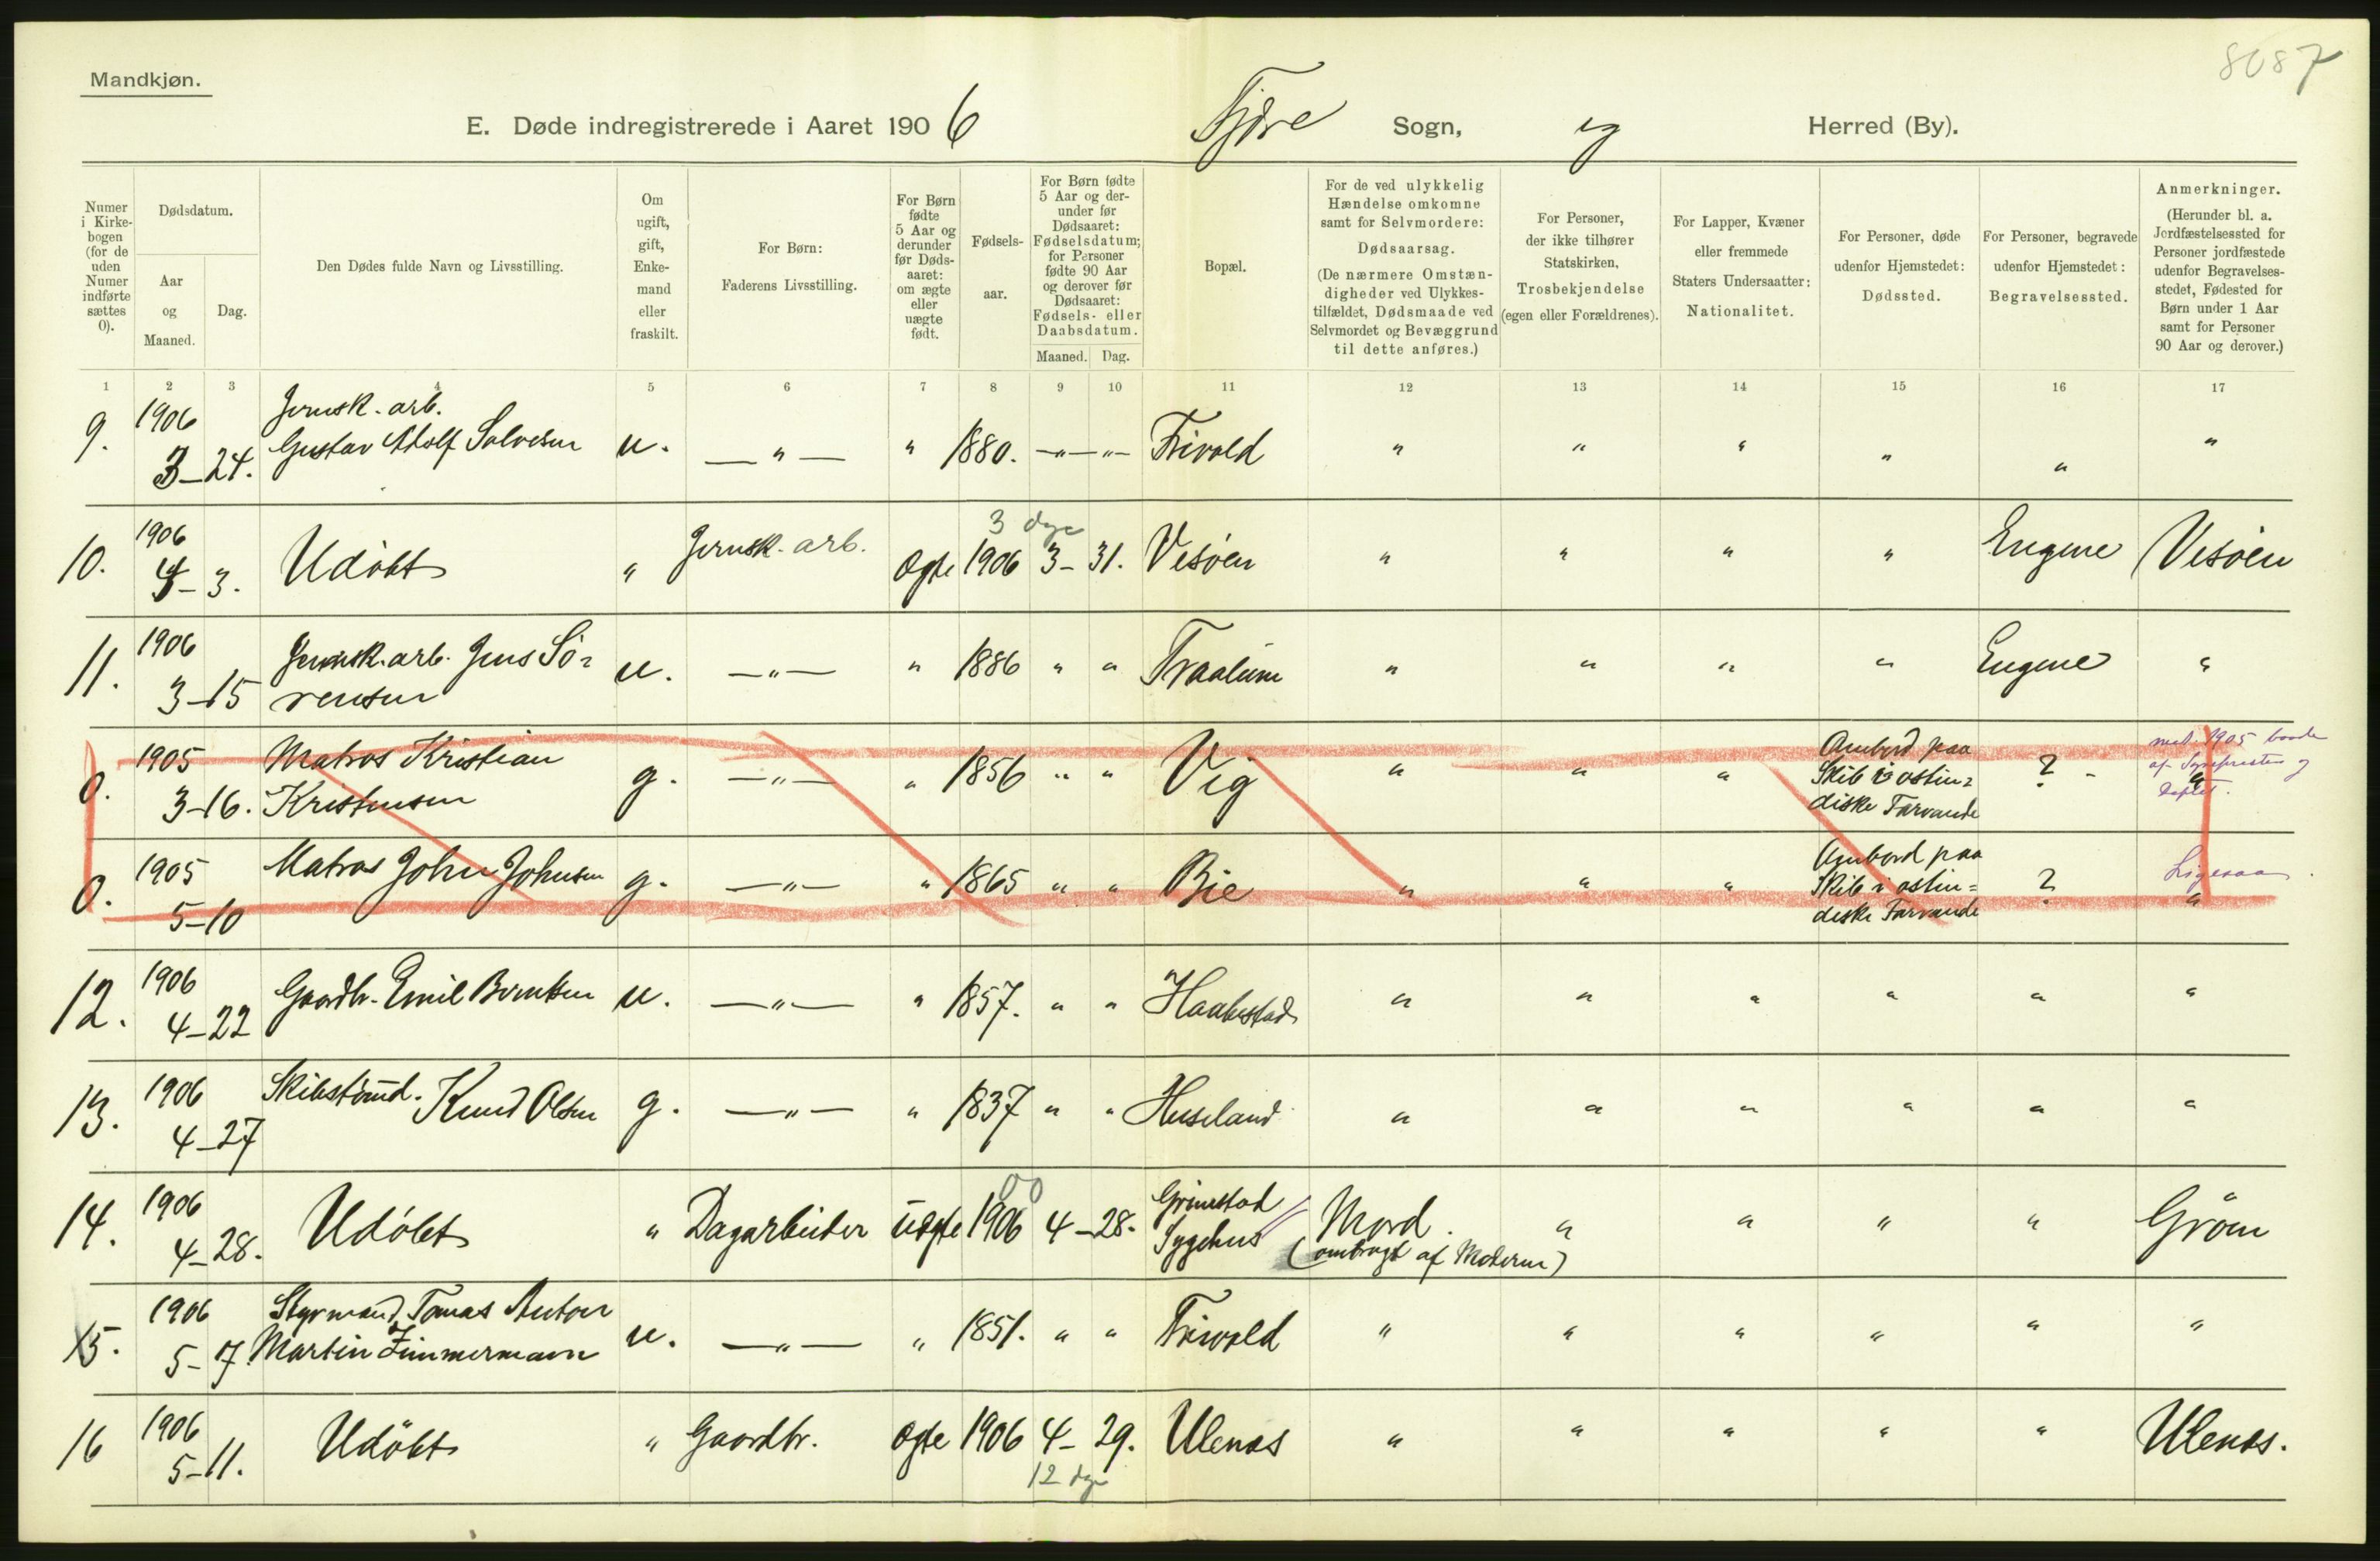 8087
Mandkjøn.
E. Døde indregistrerede i Aaret 1906 Fjære Sogn, og Herred (By).
Numer
i Kirke-
bogen
(for de
uden
Numer
indførte
sættes
0).
Dødsdatum.
Aar
og
Maaned.
Dag.
Den Dødes fulde Navn og Livsstilling.
Om
ugift,
gift,
Enke-
mand
eller
fraskilt.
For Børn:
Faderens Livsstilling.
For Børn
fødte
5 Aar og
derunder
før Døds-
aaret:
om ægte
eller
uægte
født.
Fødsels-
aar.
For Børn fødte
5 Aar og der-
under før
Dødsaaret:
Fødselsdatum;
for Personer
fødte 90 Aar
og derover før
Dødsaaret:
Fødsels- eller
Daabsdatum.
Maaned. Dag.
Bopæl.
For de ved ulykkelig
Hændelse omkomne
samt for Selvmordere:
Dødsaarsag.
(De nærmere Omstæn-
digheder ved Ulykkes-
tilfældet, Dødsmaade ved
Selvmordet og Bevæggrund
til dette anføres.)
For Personer,
der ikke tilhører
Statskirken,
Trosbekjendelse
(egen eller Forældrenes).
For Lapper, Kvæner
eller fremmede
Staters Undersaatter:
Nationalitet.
For Personer, døde
udenfor Hjemstedet:
Dødssted.
For Personer, begravede
udenfor Hjemstedet:
Begravelsessted.
Anmerkninger.
(Herunder bl. a.
Jordfæstelsessted for
Personer jordfæstede
udenfor Begravelses-
stedet, Fødested for
Børn under 1 Aar
samt for Personer
90 Aar og derover.)
1 2 3 4 5 6 7 8 9 10 11 12 13 14 15 16 17
1906 Jernsk. arb.
9. 3-24. Gustav Adolf Salvesen u. —"— " 1880. —"—"— Frivold " " " " " "
1906 3 dge
10. 4-3. Udøbt " Jernsk. arb. Ægte 1906 3-31. Vesøen " " " " Eugene Vesøen
1906 Jernsk. arb. Jens Sø=
11. 3-15 rensen u. —"— " 1886 " " Traalum " " " " Eugene "
1905 Matros Kristian Ombord paa
0. 3-16. Kristensen g. —"— " 1856 " " Vig " " " Skib i ostin= ? - "
diske Farvande
med. 1905 baade
af og
1905 Matros John Johnsen Ombord paa
0. 5-10 g. —"— " 1865 " " Bie " " " Skib i ostin= ? "
diske Farvande
Ligesaa.
1906
12. 4-22 Gaardbr. Emil Berntsen u. —"— " 1857. " " Haabestad " " " " " "
1906 Skibstømd.
13. 4-27 Knud Olsen g. —"— " 1837 " " Huseland " " " " " "
1906 00 Grimstad
14. 4-28. Udøbt " Dagarbeider uægte 1906 4-28. Sygehus Mord. " " " " Grøm
(ombragt af Moderen)
1906 Styrmand Tomas Anton
15. 5-7. Martin Zimmermann u. —"— " 1851. " " Frivold " " " " " "
1906
16 5-11. Udøbt " Gaardbr. Ægte 1906 4-29. Ulenes " " " " " Ulenes.
12 dge